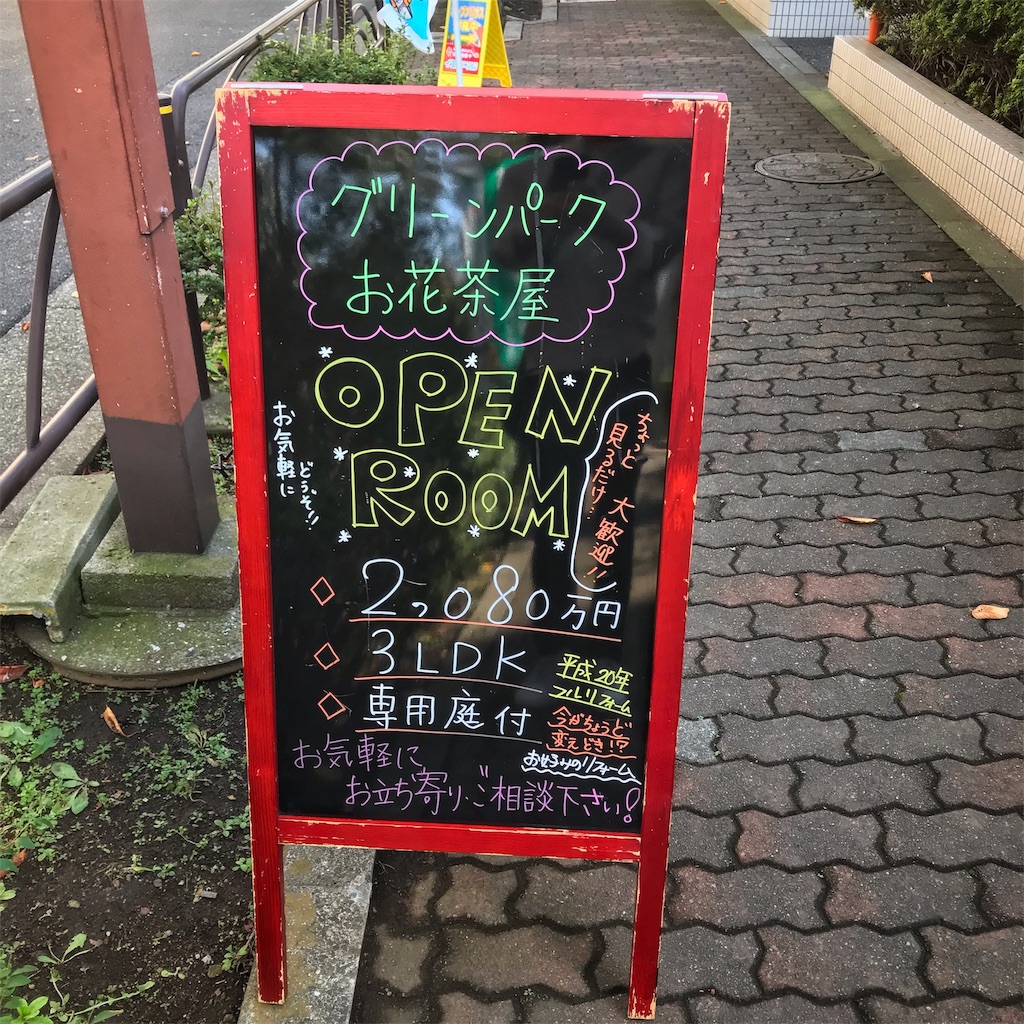 グリーンパーク
お花茶屋
OPEN
ROOM
お気軽に
どうぞ!!
ちょっと
見るだけ…
大歓迎!!
2,080万円
3LDK
専用庭付
平成20年
フルリフォーム
今がちょうど
変えどき!?
お好みのリフォーム
お気軽に
お立ち寄り・ご相談下さい!